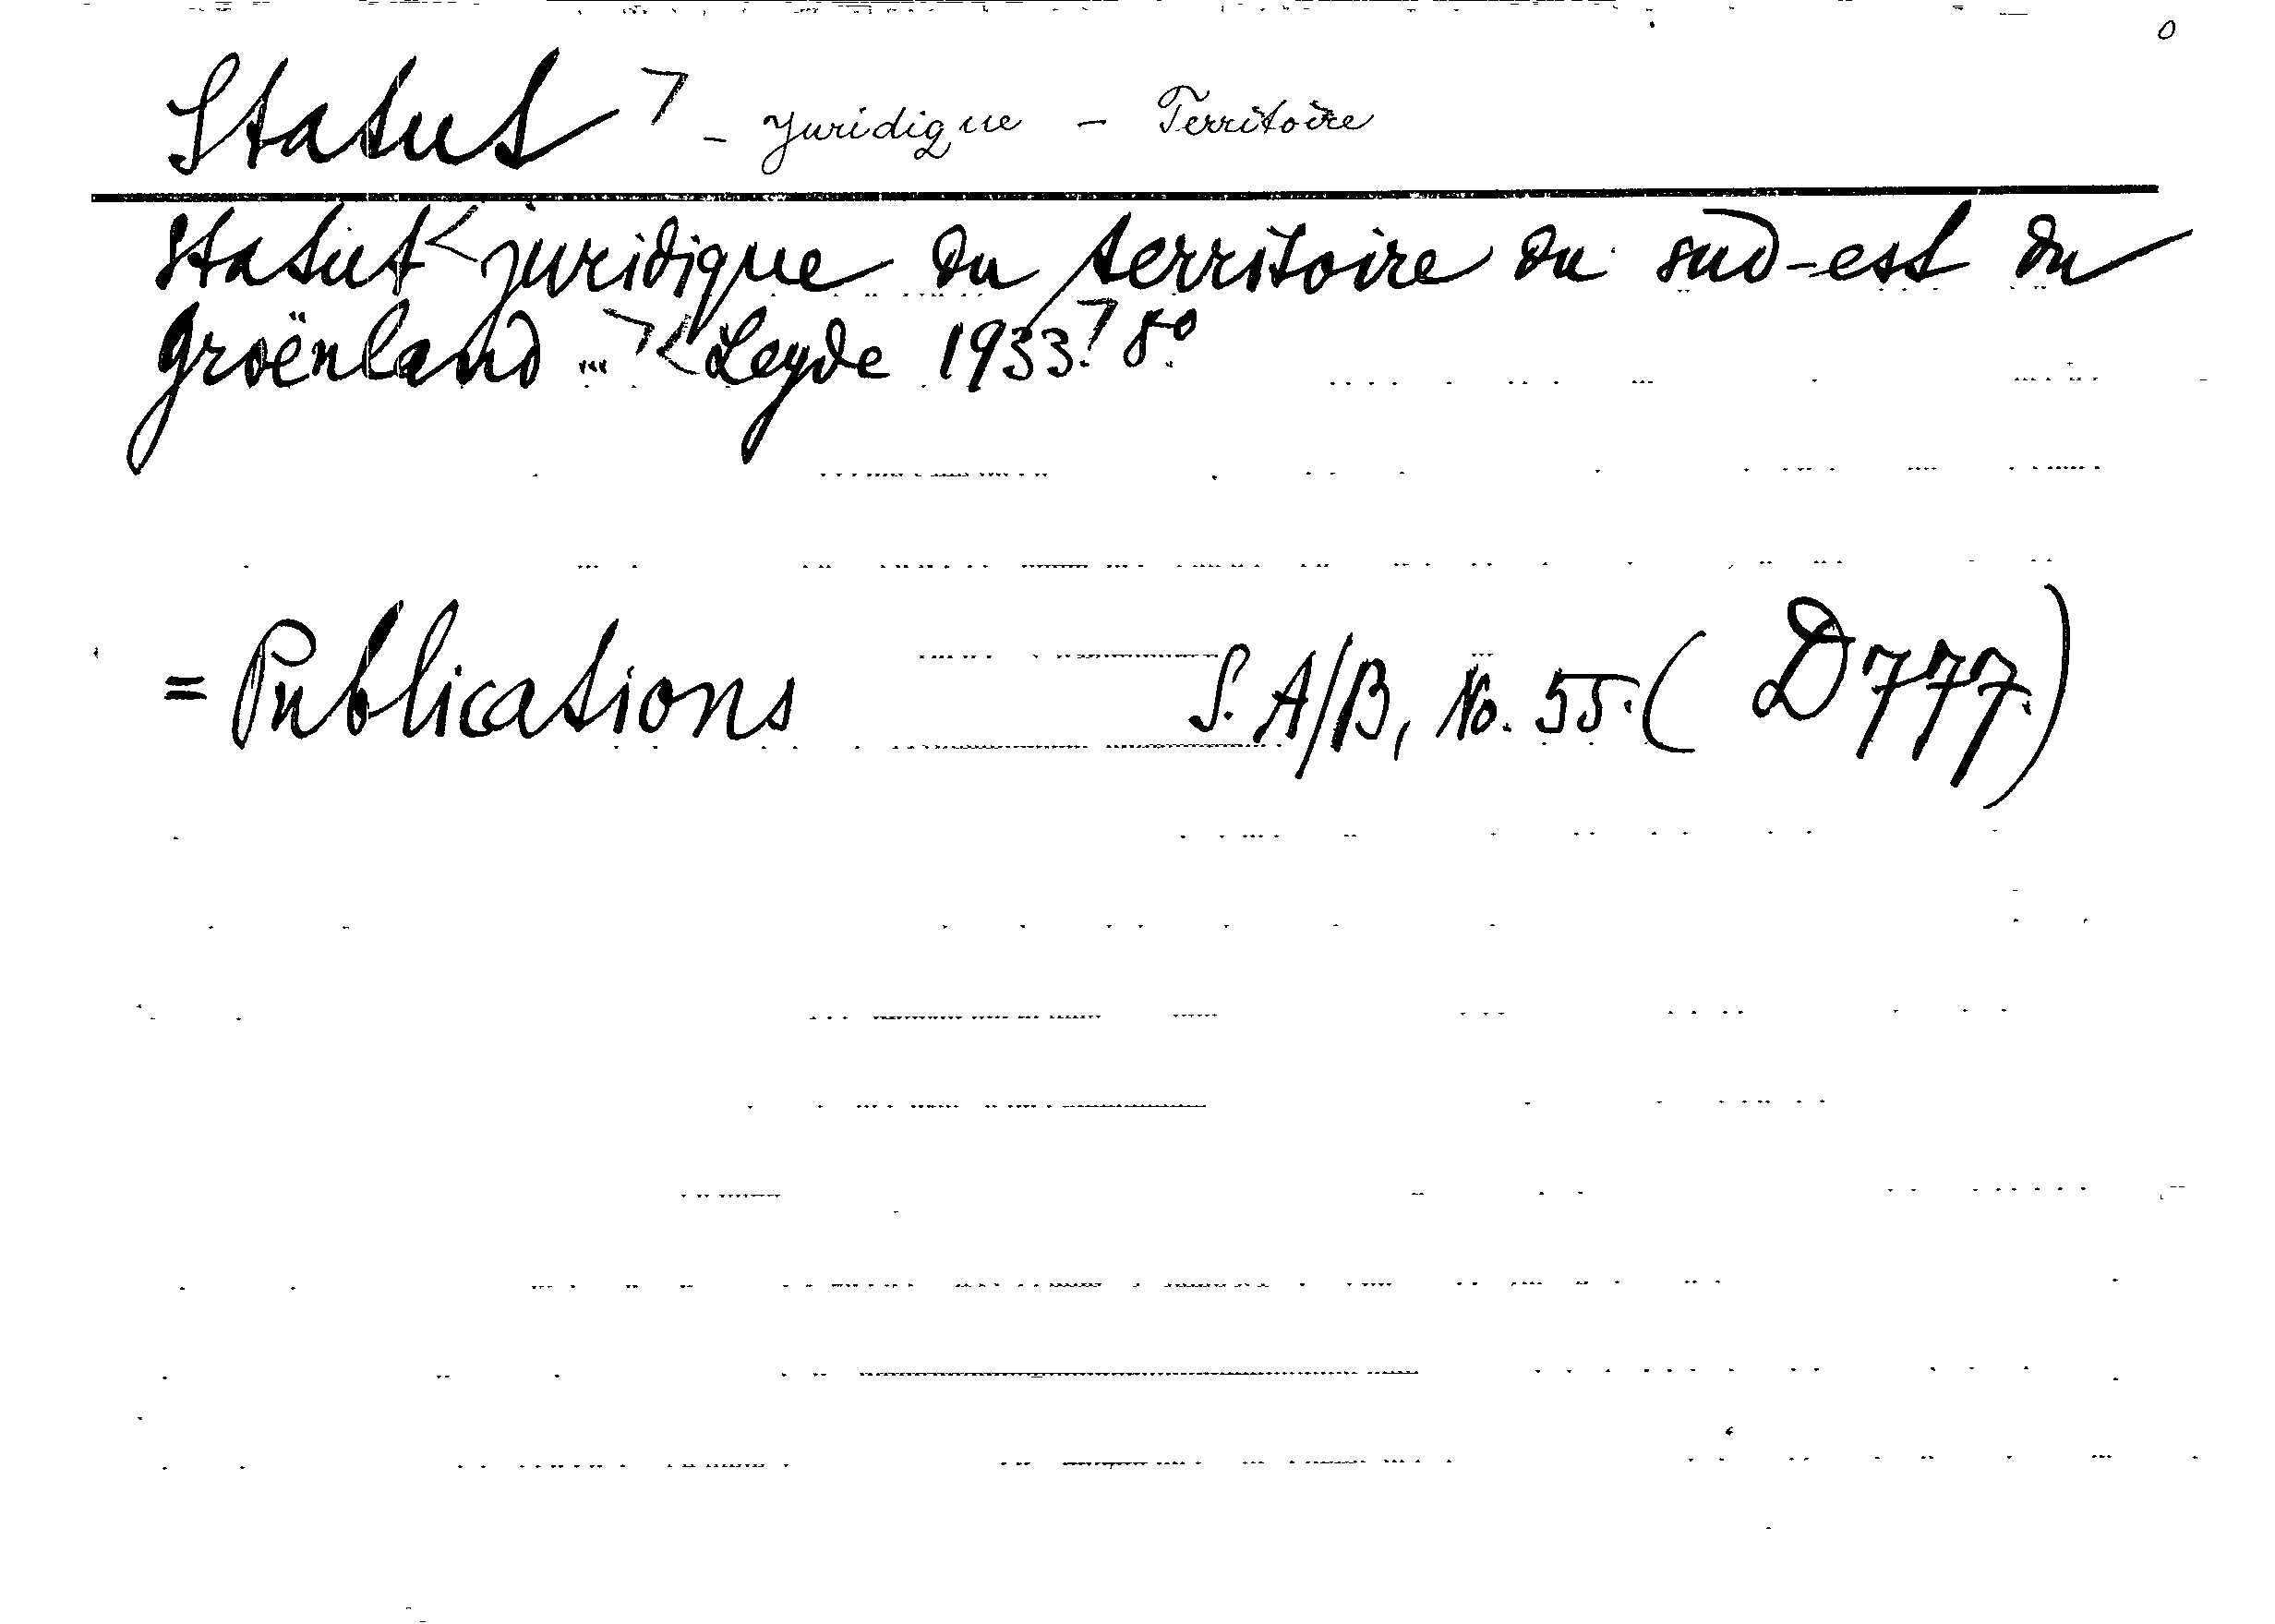 Statut - Juridique - Territoire
Statut juridique du territoire du sud-est du
Groënland ... Leyde 1933. 8o.
= Publications S. A/B, No. 55. (D777.)